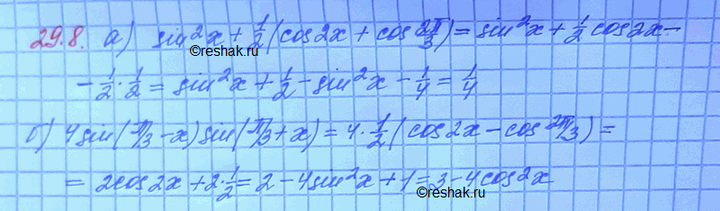 29.8. а) sin²x + 1/2(cos2x + cos 2π/3) = sin²x + 1/2 cos2x −
− 1/2 · 1/2 = sin²x + 1/2 − sin²x − 1/4 = 1/4
©reshak.ru
б) 4sin(π/3 − x) sin(π/3 + x) = 4 · 1/2 (cos2x − cos 2π/3) =
= 2cos2x + 2 · 1/2 = 2 − 4sin²x + 1 = 3 − 4cos2x
©reshak.ru